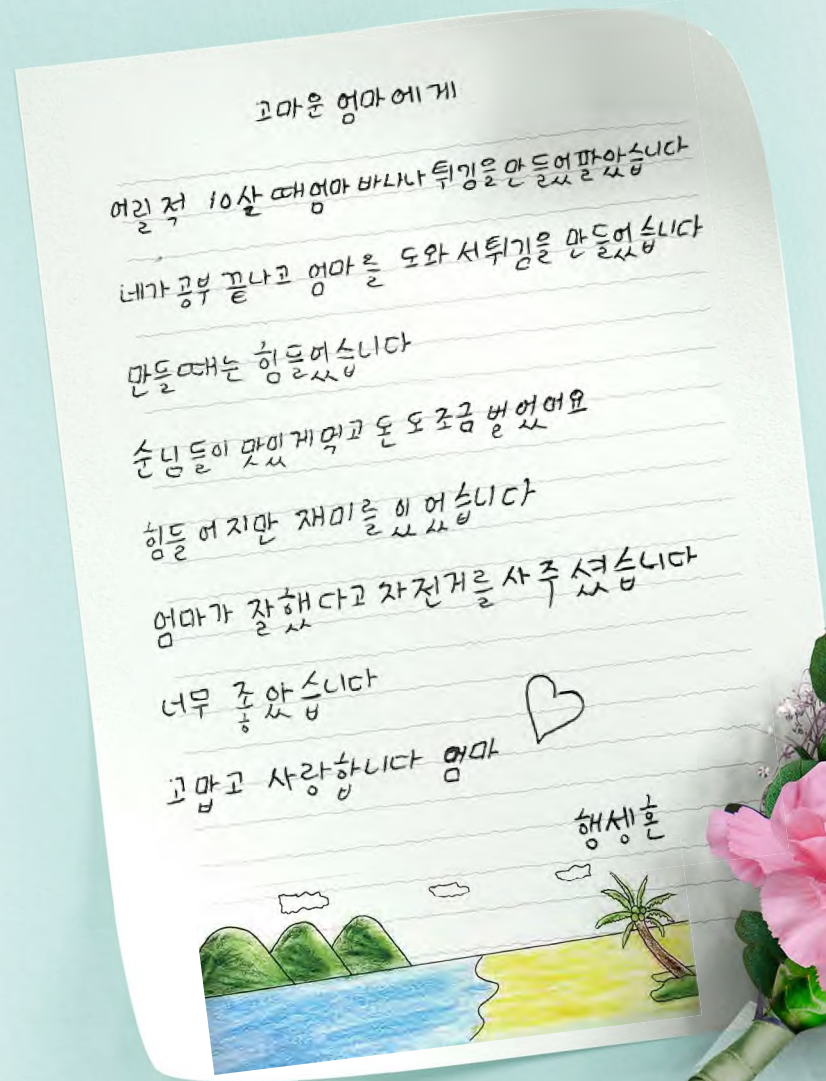 고마운 엄마에게
어릴 적 10살 때 엄마 바나나 튀김을 만들어 팔았습니다
네가 공부 끝나고 엄마를 도와 서 튀김을 만들었습니다
만들때는 힘들어습니다
순님들이 맛있게 먹고 돈 도 조금 벌었어요
힘들어지만 재미를 있었습니다
엄마가 잘했다고 자전거를 사주셨습니다
너무 좋았습니다
고맙고 사랑합니다 엄마
행세혼